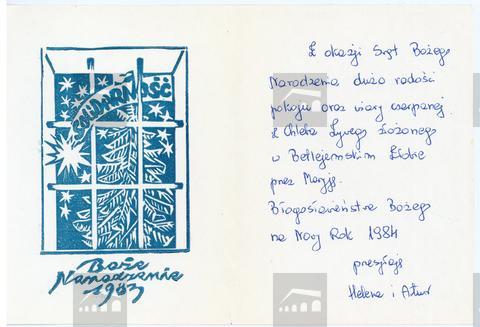 SOLIDARNOŚĆ
Boże
Narodzenie
1983
Z okazji Świąt Bożego
Narodzenia dużo radości
pokoju oraz wiary czerpanej
z Chleba Żywego złożonego
w Betlejemskim Żłobie
przez Maryję.
Błogosławieństwa Bożego
na Nowy Rok 1984
przesyłają
Helena i Artur